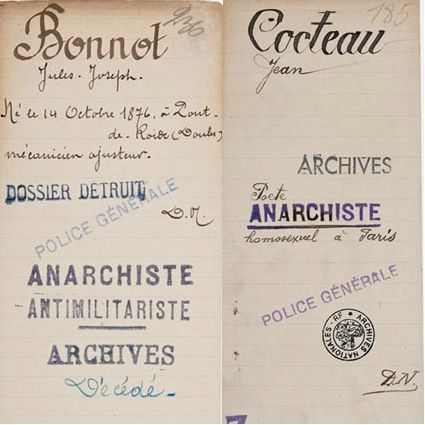 Bonnot
236
Jules-Joseph.
Né le 14 Octobre 1876, à Pont-
de-Roide (Doubs)
mécanicien ajusteur.
DOSSIER DÉTRUIT
POLICE GÉNÉRALE
D.N.
ANARCHISTE
ANTIMILITARISTE
ARCHIVES
Décédé.
185
Cocteau
Jean
ARCHIVES
Poete
ANARCHISTE
homosexuel à Paris
POLICE GÉNÉRALE
ARCHIVES NATIONALES - RF
D.N.